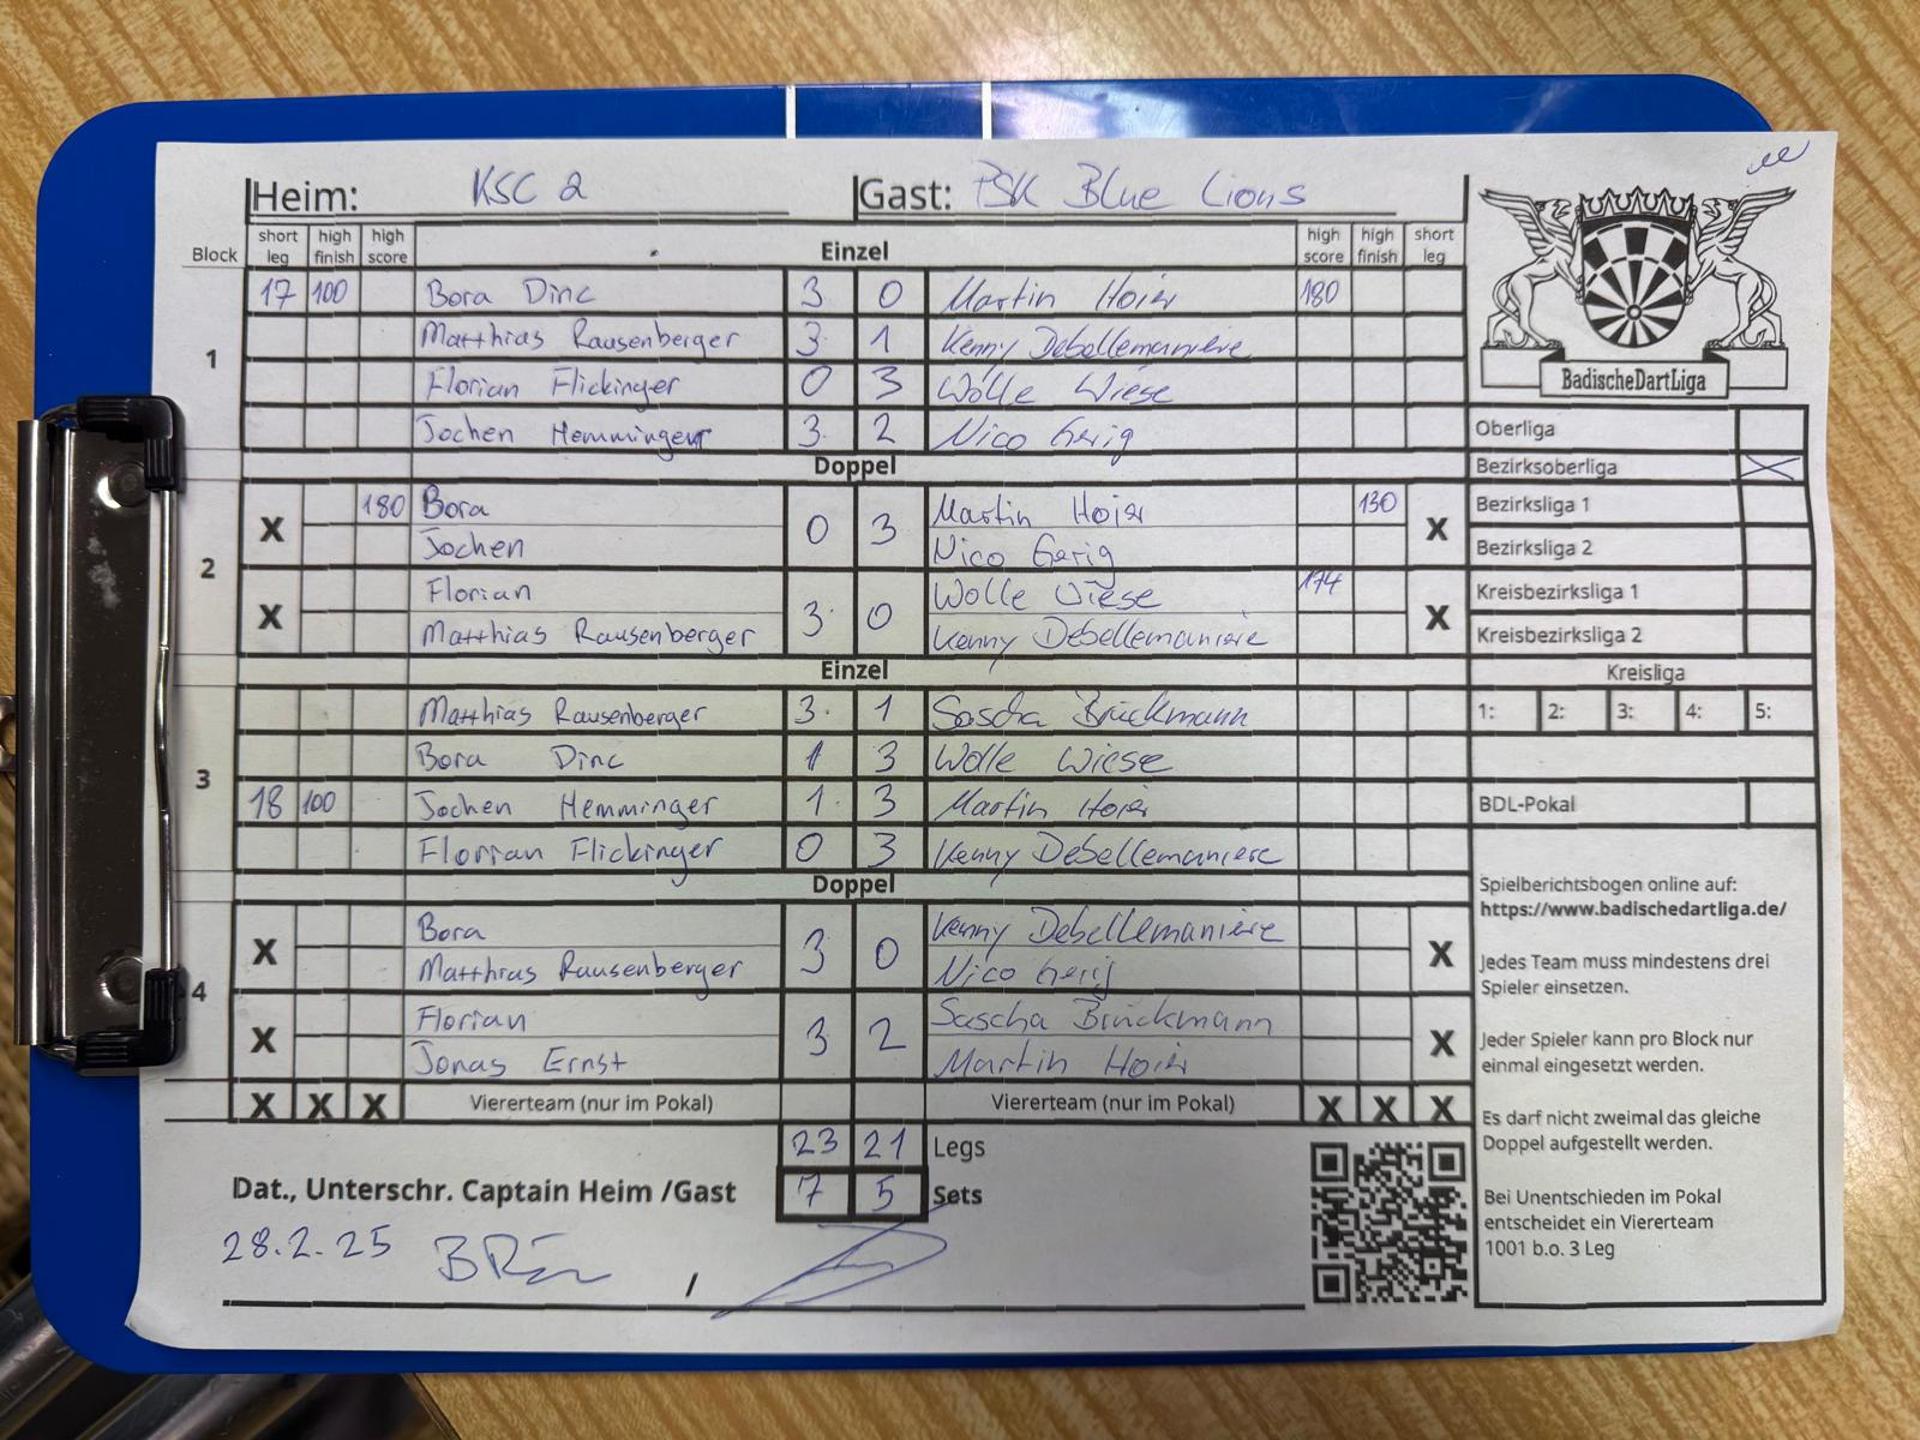 Heim: KSC 2 Gast: PSK Blue Lions
Block short leg high finish high score Einzel high score high finish short leg
1
17 100 Bora Dinc 3 0 Martin Hoier 180
Matthias Rausenberger 3 1 Kenny Debellemaniere
Florian Flickinger 0 3 Wolle Wiese
Jochen Hemminger 3 2 Nico Gerig
Doppel
2
X 180 Bora 0 3 Martin Hoier 130 X
Jochen Nico Gerig
X Florian 3 0 Wolle Wiese 174 X
Matthias Rausenberger Kenny Debellemaniere
Einzel
3
Matthias Rausenberger 3 1 Sascha Brückmann
Bora Dinc 1 3 Wolle Wiese
18 100 Jochen Hemminger 1 3 Martin Hoier
Florian Flickinger 0 3 Kenny Debellemaniere
Doppel
4
X Bora 3 0 Kenny Debellemaniere X
Matthias Rausenberger Nico Gerig
X Florian 3 2 Sascha Brückmann X
Jonas Ernst Martin Hoier
X X X Viererteam (nur im Pokal) Viererteam (nur im Pokal) X X X
23 21 Legs
Dat., Unterschr. Captain Heim /Gast 7 5 Sets
28.2.25 /
BadischeDartLiga
Oberliga
Bezirksoberliga X
Bezirksliga 1
Bezirksliga 2
Kreisbezirksliga 1
Kreisbezirksliga 2
Kreisliga
1: 2: 3: 4: 5:
BDL-Pokal
Spielberichtsbogen online auf:
https://www.badischedartliga.de/
Jedes Team muss mindestens drei
Spieler einsetzen.
Jeder Spieler kann pro Block nur
einmal eingesetzt werden.
Es darf nicht zweimal das gleiche
Doppel aufgestellt werden.
Bei Unentschieden im Pokal
entscheidet ein Viererteam
1001 b.o. 3 Leg